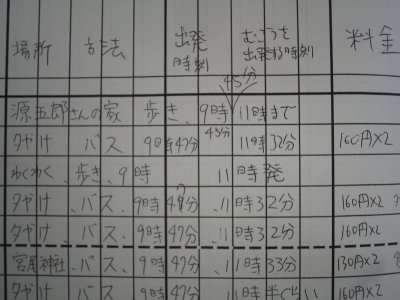 場所 方法 出発時刻 むこうを出発する時刻 料金
45分
源五郎さんの家 歩き、9時 11時まで
夕やけ バス 9時47分 45分 11時32分 160円×2
わくわく、歩き、9時 11時発
夕やけ、バス、9時47分、11時32分 160円×2
夕やけ、バス、9時47分、11時32分 160円×2
宮尾神社、バス、9時47分、11時33分 130円×2
夕やけ バス、9時47分 11時半ぐらい 160円×2